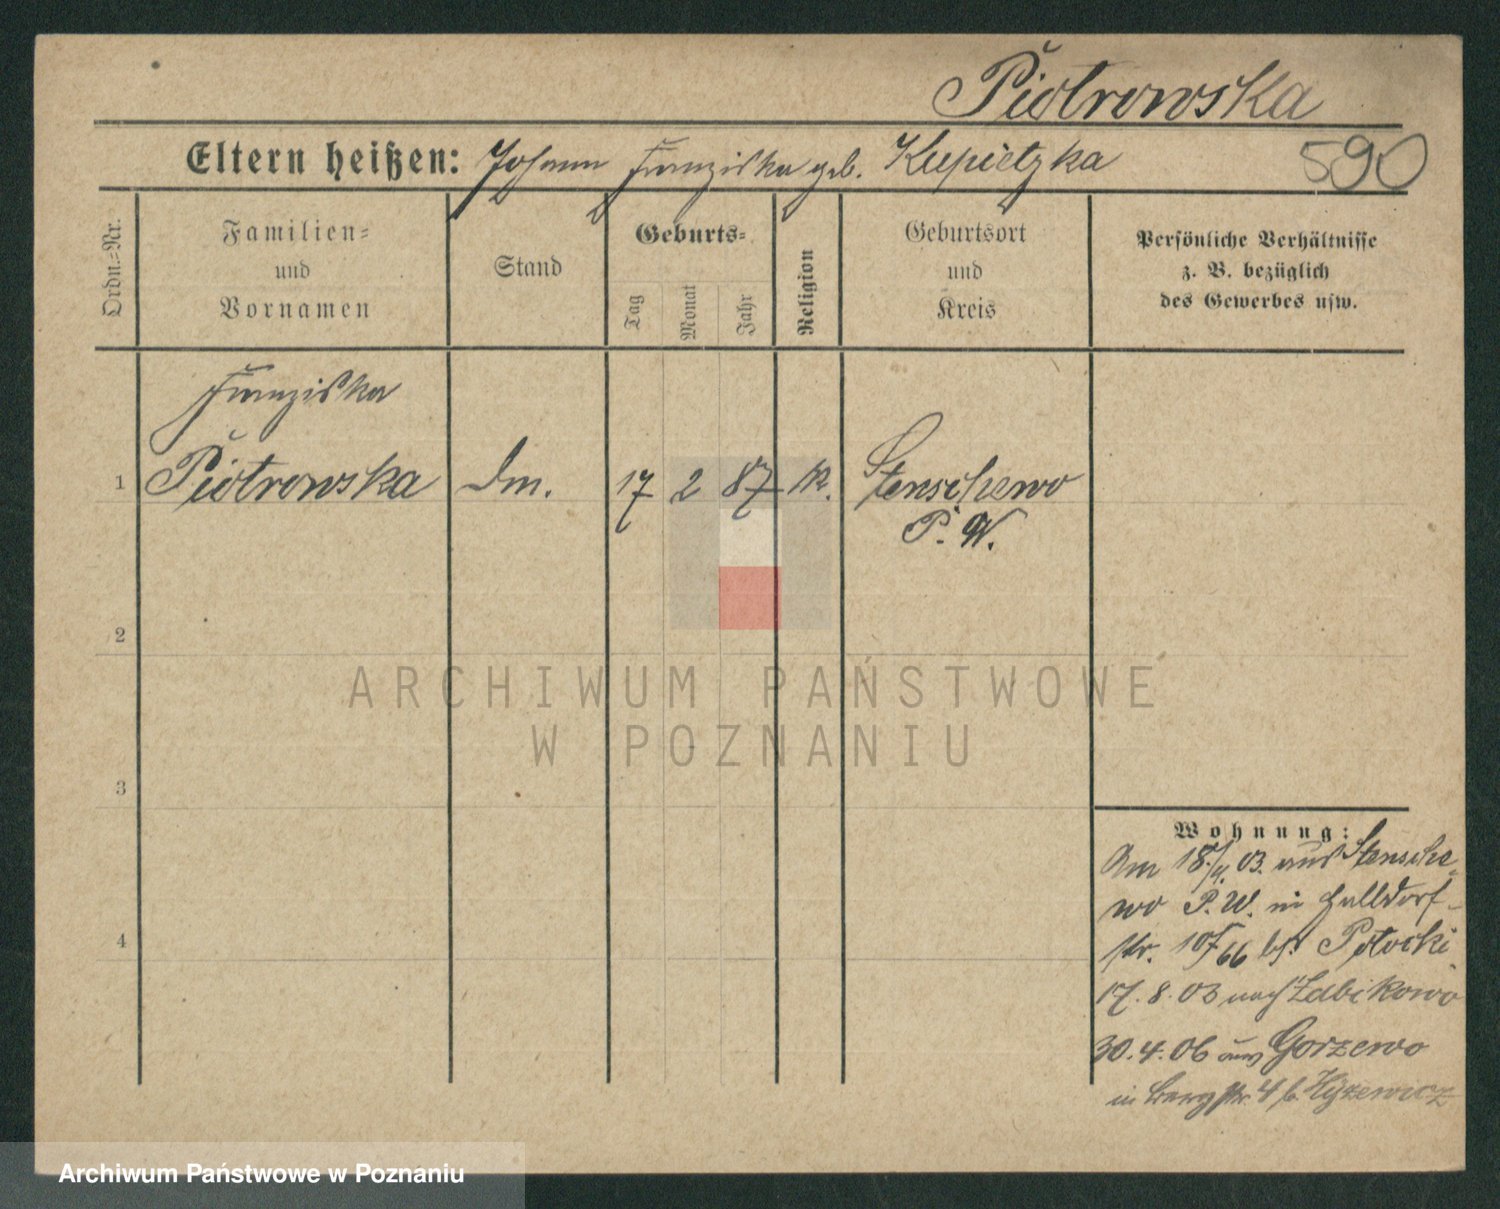 Piotrowska
Eltern heißen: Johann Franziska geb. Kupietzka 590
Ordn.-Nr.
Familien-
und
Vornamen
Stand
Geburts-
Tag
Monat
Jahr
Religion
Geburtsort
und
Kreis
Persönliche Verhältnisse
z. B. bezüglich
des Gewerbes usw.
Franziska
1 Piotrowska Dm. 17 2 87 K. Stenschewo
P. W.
2
3
4
ARCHIWUM PAŃSTWOWE
W POZNANIU
Wohnung:
Am 18/4. 03. aus Stensche-
wo P. W. in Halldorf-
str. 10 bei Potocki
17. 8. 03 nach Zabikowo
30. 4. 06 aus Gorzewo
in Bergstr. 4 b. Hyzewicz
Archiwum Państwowe w Poznaniu